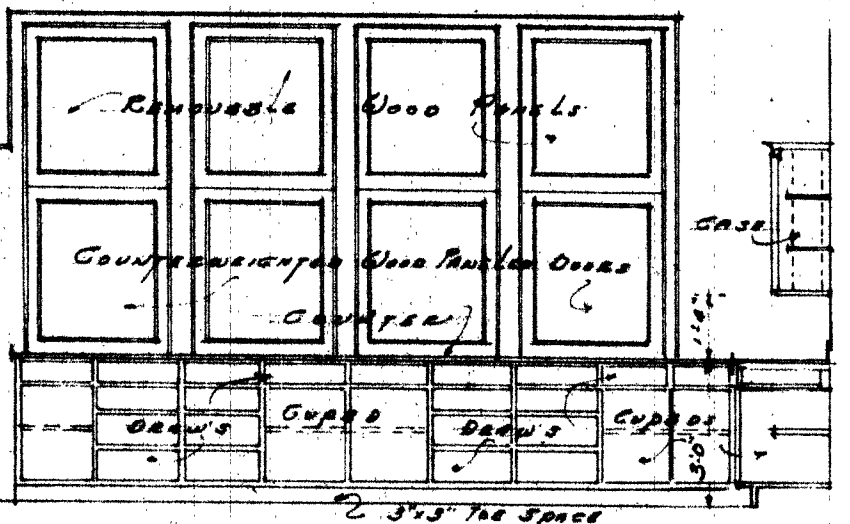 REMOVABLE WOOD PANELS
CASE
COUNTERWEIGHTED WOOD PANELED DOORS
1'-4"
COUNTER
DRAW'S CUPBD DRAW'S CUPBDS
3'-0"
3"x3" TOE SPACE